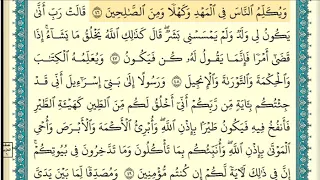 وَيُكَلِّمُ النَّاسَ فِي الْمَهْدِ وَكَهْلًا وَمِنَ الصَّالِحِينَ ۝ قَالَتْ رَبِّ أَنَّىٰ
يَكُونُ لِي وَلَدٌ وَلَمْ يَمْسَسْنِي بَشَرٌ قَالَ كَذَٰلِكِ اللَّهُ يَخْلُقُ مَا يَشَاءُ إِذَا
قَضَىٰ أَمْرًا فَإِنَّمَا يَقُولُ لَهُ كُن فَيَكُونُ ۝ وَيُعَلِّمُهُ الْكِتَابَ
وَالْحِكْمَةَ وَالتَّوْرَاةَ وَالْإِنجِيلَ ۝ وَرَسُولًا إِلَىٰ بَنِي إِسْرَائِيلَ أَنِّي قَدْ
جِئْتُكُم بِآيَةٍ مِّن رَّبِّكُمْ أَنِّي أَخْلُقُ لَكُم مِّنَ الطِّينِ كَهَيْئَةِ الطَّيْرِ
فَأَنفُخُ فِيهِ فَيَكُونُ طَيْرًا بِإِذْنِ اللَّهِ وَأُبْرِئُ الْأَكْمَهَ وَالْأَبْرَصَ وَأُحْيِي
الْمَوْتَىٰ بِإِذْنِ اللَّهِ وَأُنَبِّئُكُم بِمَا تَأْكُلُونَ وَمَا تَدَّخِرُونَ فِي بُيُوتِكُمْ إِنَّ
فِي ذَٰلِكَ لَآيَةً لَّكُمْ إِن كُنتُم مُّؤْمِنِينَ ۝ وَمُصَدِّقًا لِّمَا بَيْنَ يَدَيَّ